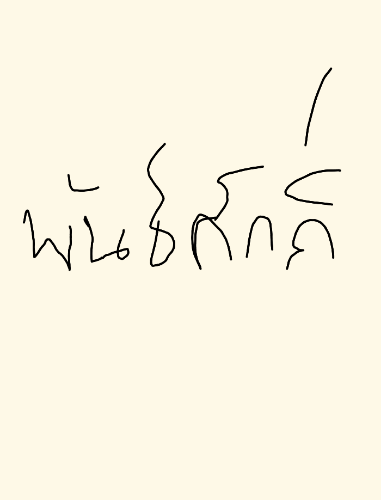 พันธ์ศักดิ์